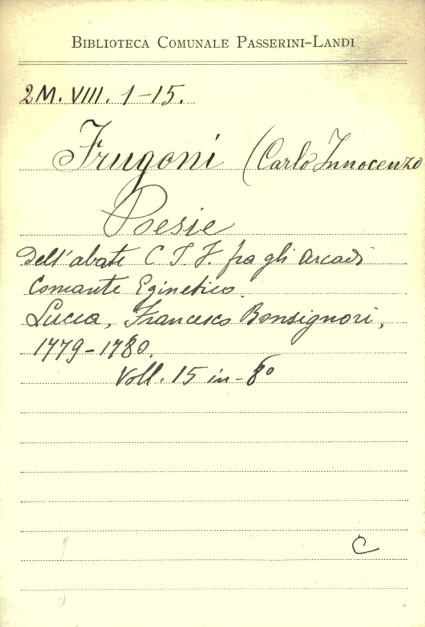 BIBLIOTECA COMUNALE PASSERINI-LANDI
2M. VIII. 1-15.
Frugoni (Carlo Innocenzo
Poesie
dell'abate C I F. fra gli arcadi
Comante Eginetico.
Lucca, Francesco Bonsignori,
1779-1780.
Voll. 15 in-8°
C